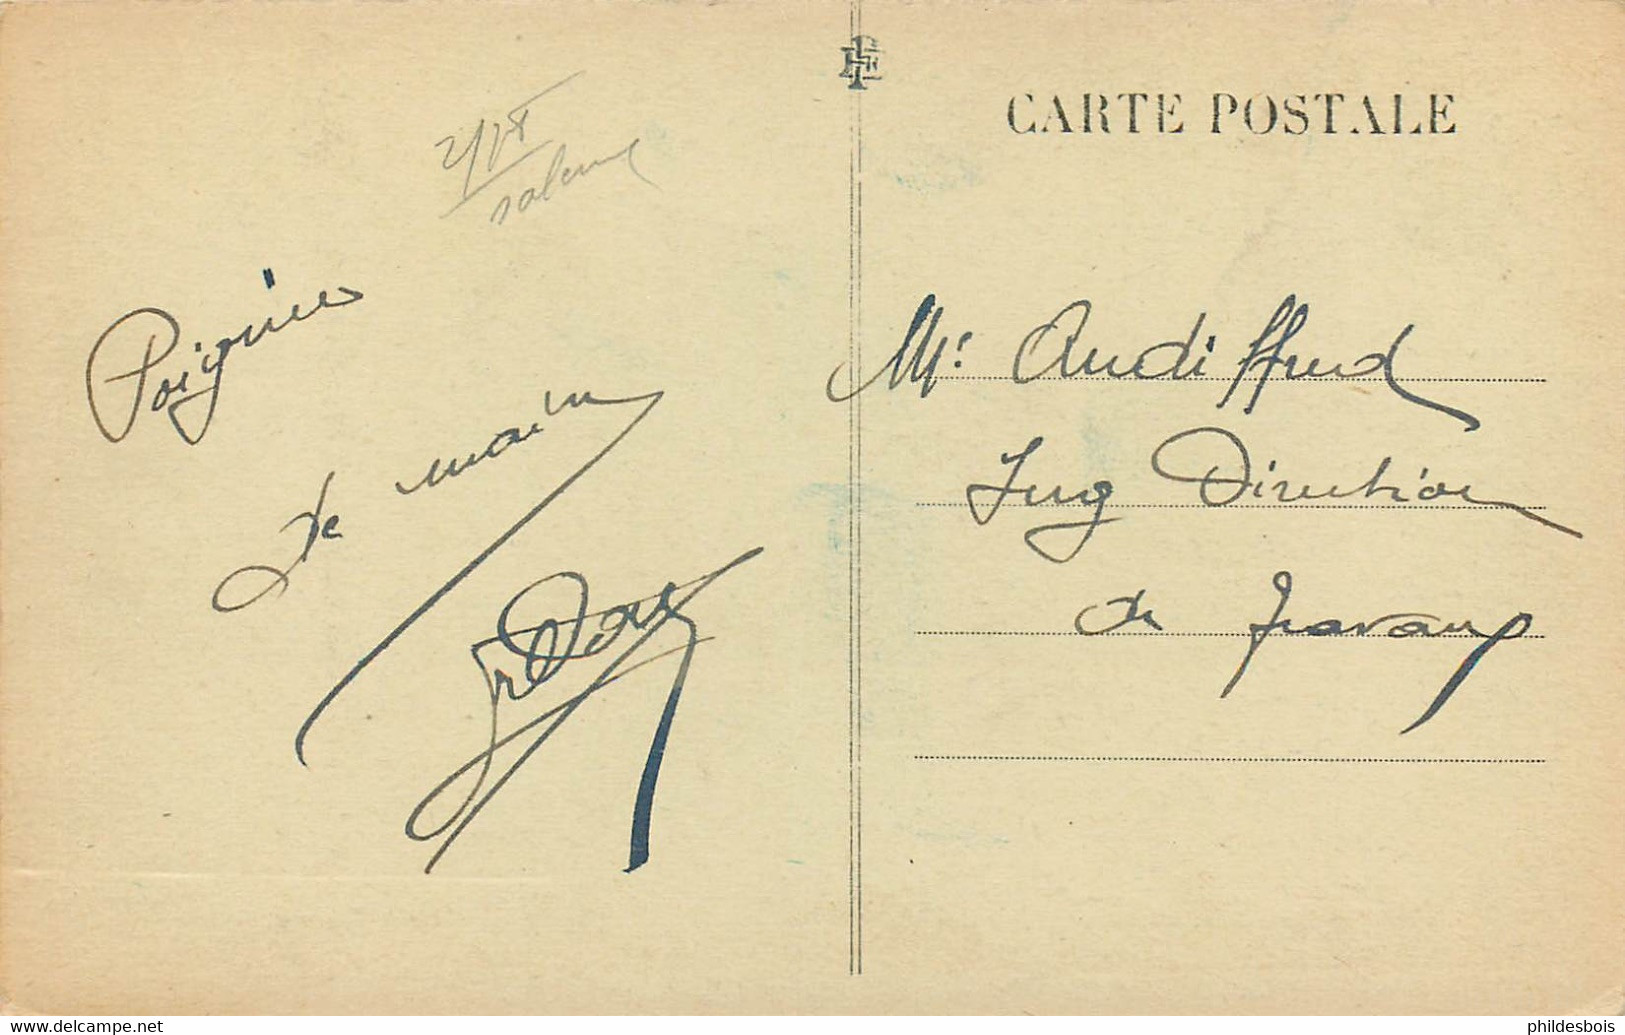 CARTE POSTALE
Poignée
de main
Mr. Audiffred
Ing Direction
de Travaux
www.delcampe.net
phildesbois